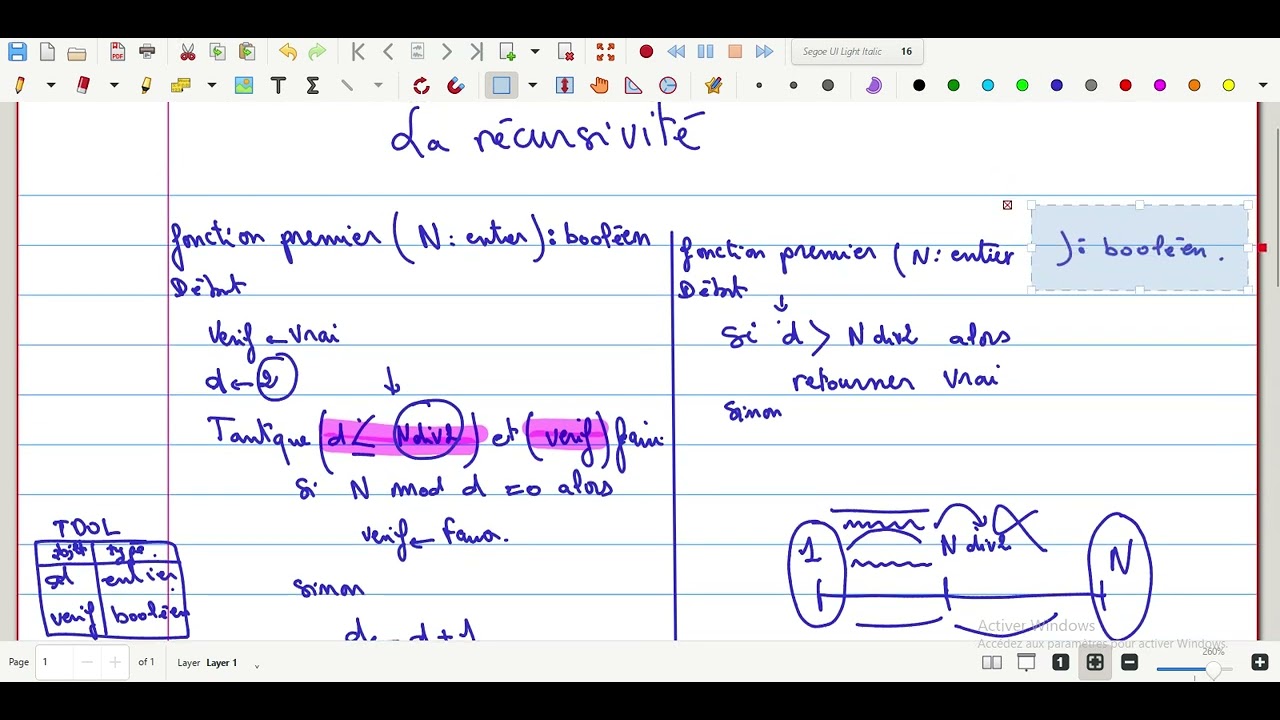 Segoe UI Light Italic 16
PDF
La récursivité
fonction premier (N: entier): booléen
Début
Verif ← Vrai
d ← 2
Tantque (d ≤ N div2) et (verif) faire
Si N mod d =0 alors
verif ← Faux.
Sinon
d ← d + 1
TDOL
objet type.
d entier
verif booléen
fonction premier (N: entier ): booléen.
Début
Si d > N div2 alors
retourner Vrai
Sinon
1 N div2 N
Activer Windows
Accédez aux paramètres pour activer Windows.
Page 1 of 1 Layer Layer 1
1
260%